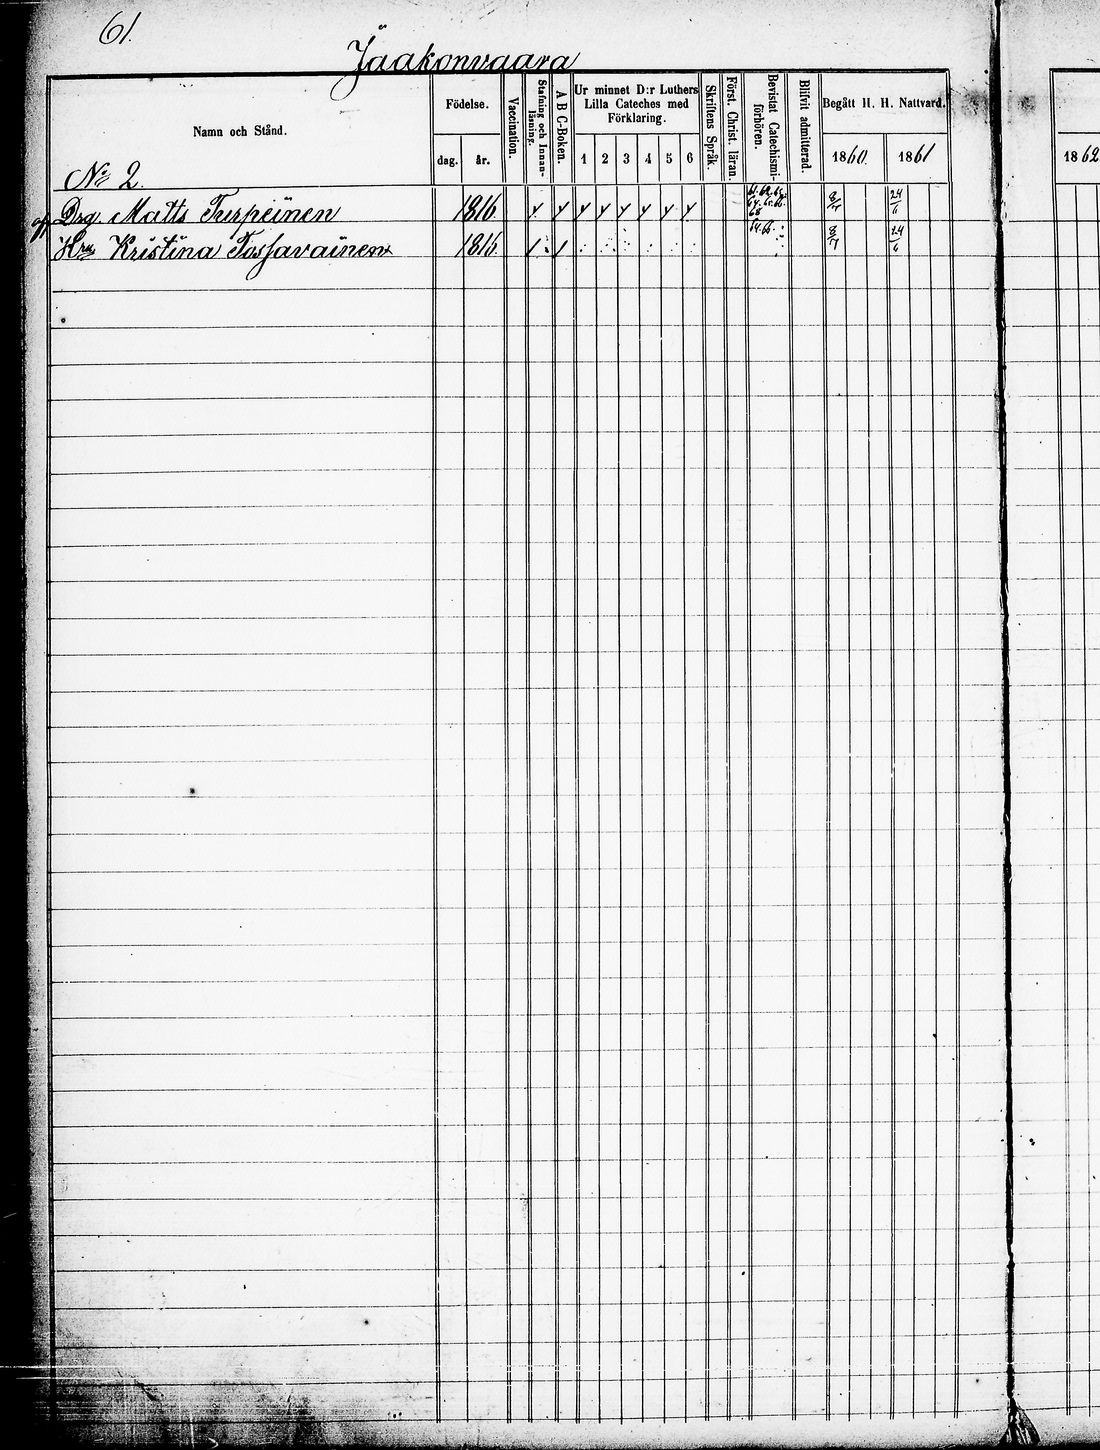 61.
Jaakonvaara
Namn och Stånd.
Födelse.
dag. år.
Vaccination.
Stafning och Innan-
läsning.
A B C-Boken.
Ur minnet D:r Luthers
Lilla Cateches med
Förklaring.
1 2 3 4 5 6
Skriftens Språk.
Först. Christ. läran.
Bevistat Catechismi-
förhören.
Blifvit admitterad.
Begått H. H. Nattvard.
1860. 1861
1862
No 2.
Drg. Matts Turpeinen 1816. 8/7 24/6
Hru Kristina Tossavainen 1816. 8/7 24/6